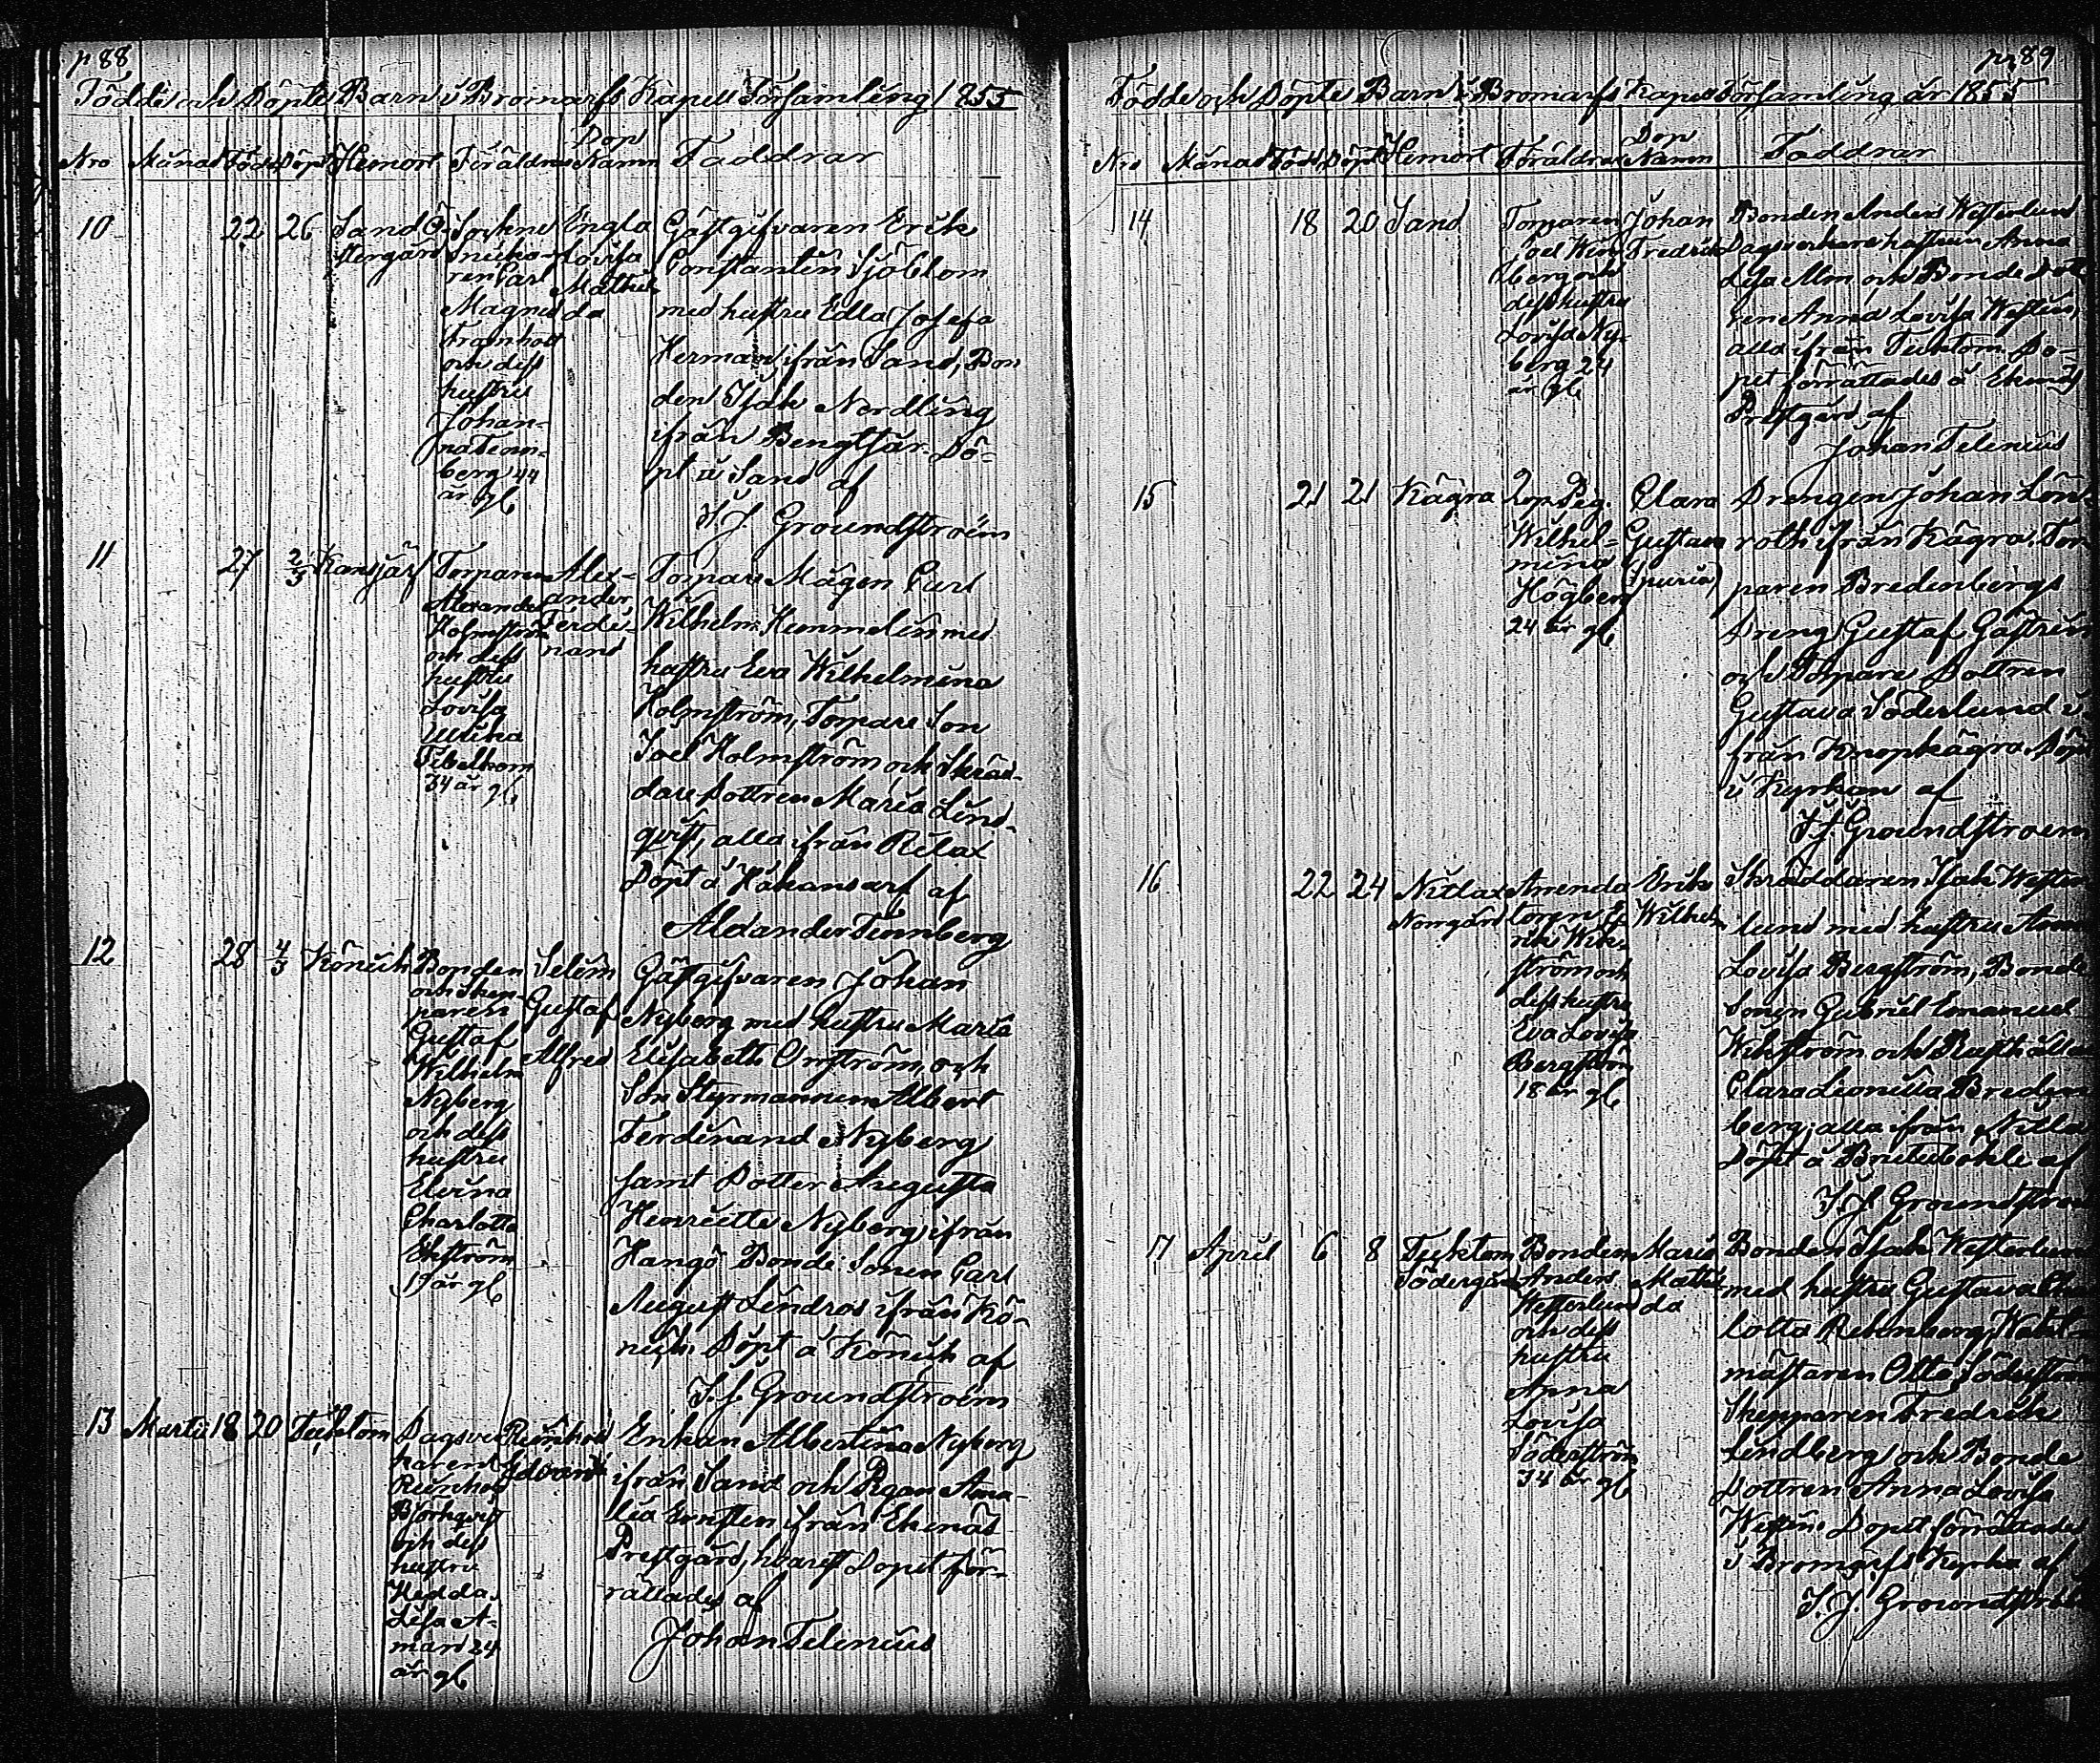 p 88
Födde och Döpte Barn i Bromarfs Kapell Församling 1855
Nro Månad Född Döpt Hemort Föräldrar Dop Namn Faddrar
10 22 26 Sand Ö
stergård
Sockne
snicka-
ren Carl
Magnus
Framholt
och dess
hustru
Johan-
na Tenn-
berg 44
år gl
Engla
Lovisa
Mathil
da
Gästgifvaren Erik
Constantin Sjöblom
med hustru Edla Josefa
Herman, ifrån Sand, Bon
den Isak Nordling
ifrån Bengtsår. Dö-
pt i Sand af
I. J. Groundstroem
11 27 2/3 Kansjärf
Torparen
Alexander
Holmström
och dess
hustru
Lovisa
Ulrika
34 år gl
Alex-
ander
Ferdi-
nand
Torpare Mågen Carl
Wilhelm Hemmelin med
hustru Eva Wilhelmina
Holmström, Torpare Son
Joel Holmström och Skräd-
dare Dottren Maria Lind-
qvist, alla ifrån Rilax
Döpt å Håkansarf af
Alexander Tennberg
12 28 4/3 Könick
Bonden
och Skep-
paren
Gustaf
Wilhelm
Nyberg
och dess
hustru
Elvina
Charlotta
Ekström
år gl
Selim
Gustaf
Alfred
Gästgifvaren Johan
Nyberg med hustru Maria
Elisabeth Orrström, och
Son Styrmannen Albert
Ferdinand Nyberg
samt Dotter Augusta
Henriette Nyberg ifrån
Hangö Bonde Sonen Carl
August Lindros ifrån Kö-
nick Döpt å Könick af
I. J. Groundstroem
13 Martii 18 20 Tecktom
Dagsver
karen
Reinhold
Björkqvist
och dess
hustru
Hedda
Lisa A-
man 24
år gl
Reinhold
Edvard
Enkan Albertina Nyberg
ifrån Sand och Pigan Ama
lia Ernsten ifrån Ekenäs
Prestgård, hvarest Dopet för-
rättades af
Johan Telenius
p 89
Födde och Döpte Barn i Bromarfs Kapell Församling år 1855
Nro Månad Född Döpt Hemort Föräldrar Dop Namn Faddrar
14 18 20 Sand
Torparen
Joel Win
berg och
dess hustru
Lovisa Ny-
berg 24
år gl
Johan
Fredrik
Bonden Anders Westerlund
Dagsverkare hustrun Anna
Lisa Alm och Bonde Dott
ren Anna Lovisa Westin,
alla ifrån Tecktom. Do-
pet förrättades å Ekenäs
Prestgård af
Johan Telenius
15 21 21 Kägra
Pig.
Wilhel-
mina
Högberg
24 år gl
Clara
Gustava
(spuria)
Drengen Johan Lönn
roth ifrån Kägra. Tor
paren Bredenbergs
Dreng Gustaf Gästrin
och Torpare Dottren
Gustava Söderlund i
från Knopkägra. Döpt
i Kyrkan af
I. J. Groundstroem
16 22 24 Nitlax
Norrgård
Arrenda
toren E
rik Wik-
ström och
dess hustru
Eva Lovisa
Bergström
18 år gl
Erik
Wilhelm
Skräddaren Isak Wester
lund med hustru Anna
Lovisa Bergström, Bonde
Sonen Gabriel Emanuel
Wikström och Rusthålla
Clara Leonilla Breden
berg, alla ifrån Nitla
Döpt å af
I. J. Groundstroem
17 April 6 8 Tecktom
Södergård
Bonden
Anders
Westerlund
och dess
hustru
Anna
Lovisa
Söderström
34 år gl
Maria
Mathil
da
Bonden Isak Westerlund
med hustru Gustava Cha
lotta Rehnberg, Wakt
mästaren Otto Söderström
Skepparen Fredrik
Lindberg och Bonde
Dottren Anna Lovisa
Westin. Dopet förrättades
i Bromarfs Kyrka af
I. J. Groundstroe